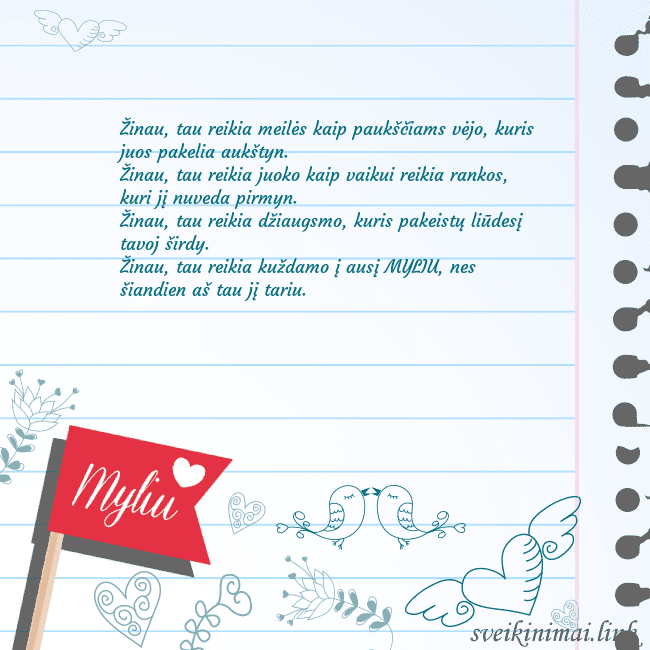 Žinau, tau reikia meilės kaip paukščiams vėjo, kuris
juos pakelia aukštyn.
Žinau, tau reikia juoko kaip vaikui reikia rankos,
kuri jį nuveda pirmyn.
Žinau, tau reikia džiaugsmo, kuris pakeistų liūdesį
tavoj širdy.
Žinau, tau reikia kuždamo į ausį MYLIU, nes
šiandien aš tau jį tariu.
Myliu
sveikinimai.link